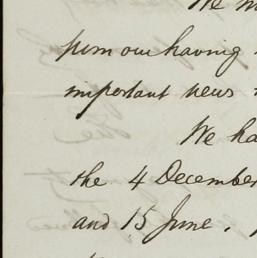 We
from our having
important news
We ha
the 4 December
and 15 June,